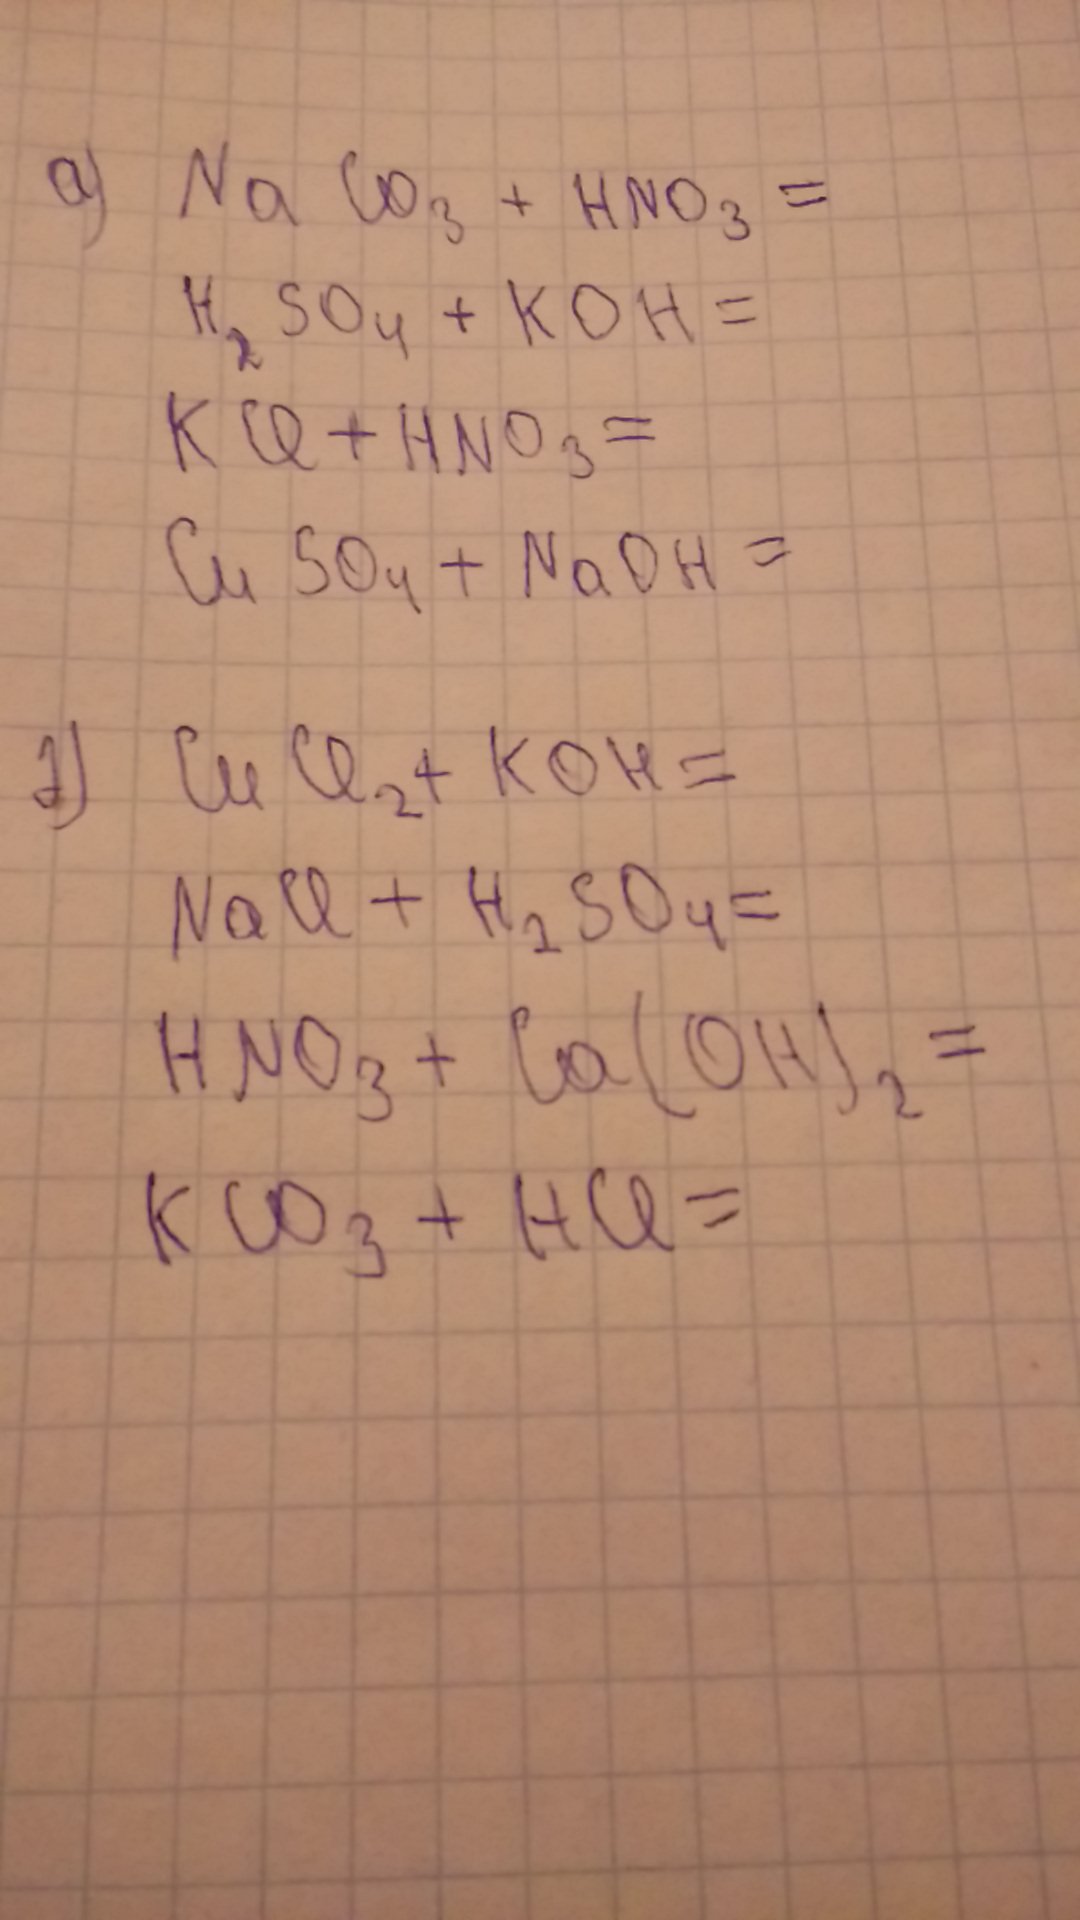 а) NaCO3 + HNO3 =
H2SO4 + KOH =
KCl + HNO3 =
CuSO4 + NaOH =
2) CuCl2 + KOH =
NaCl + H2SO4 =
HNO3 + Ca(OH)2 =
KCO3 + HCl =